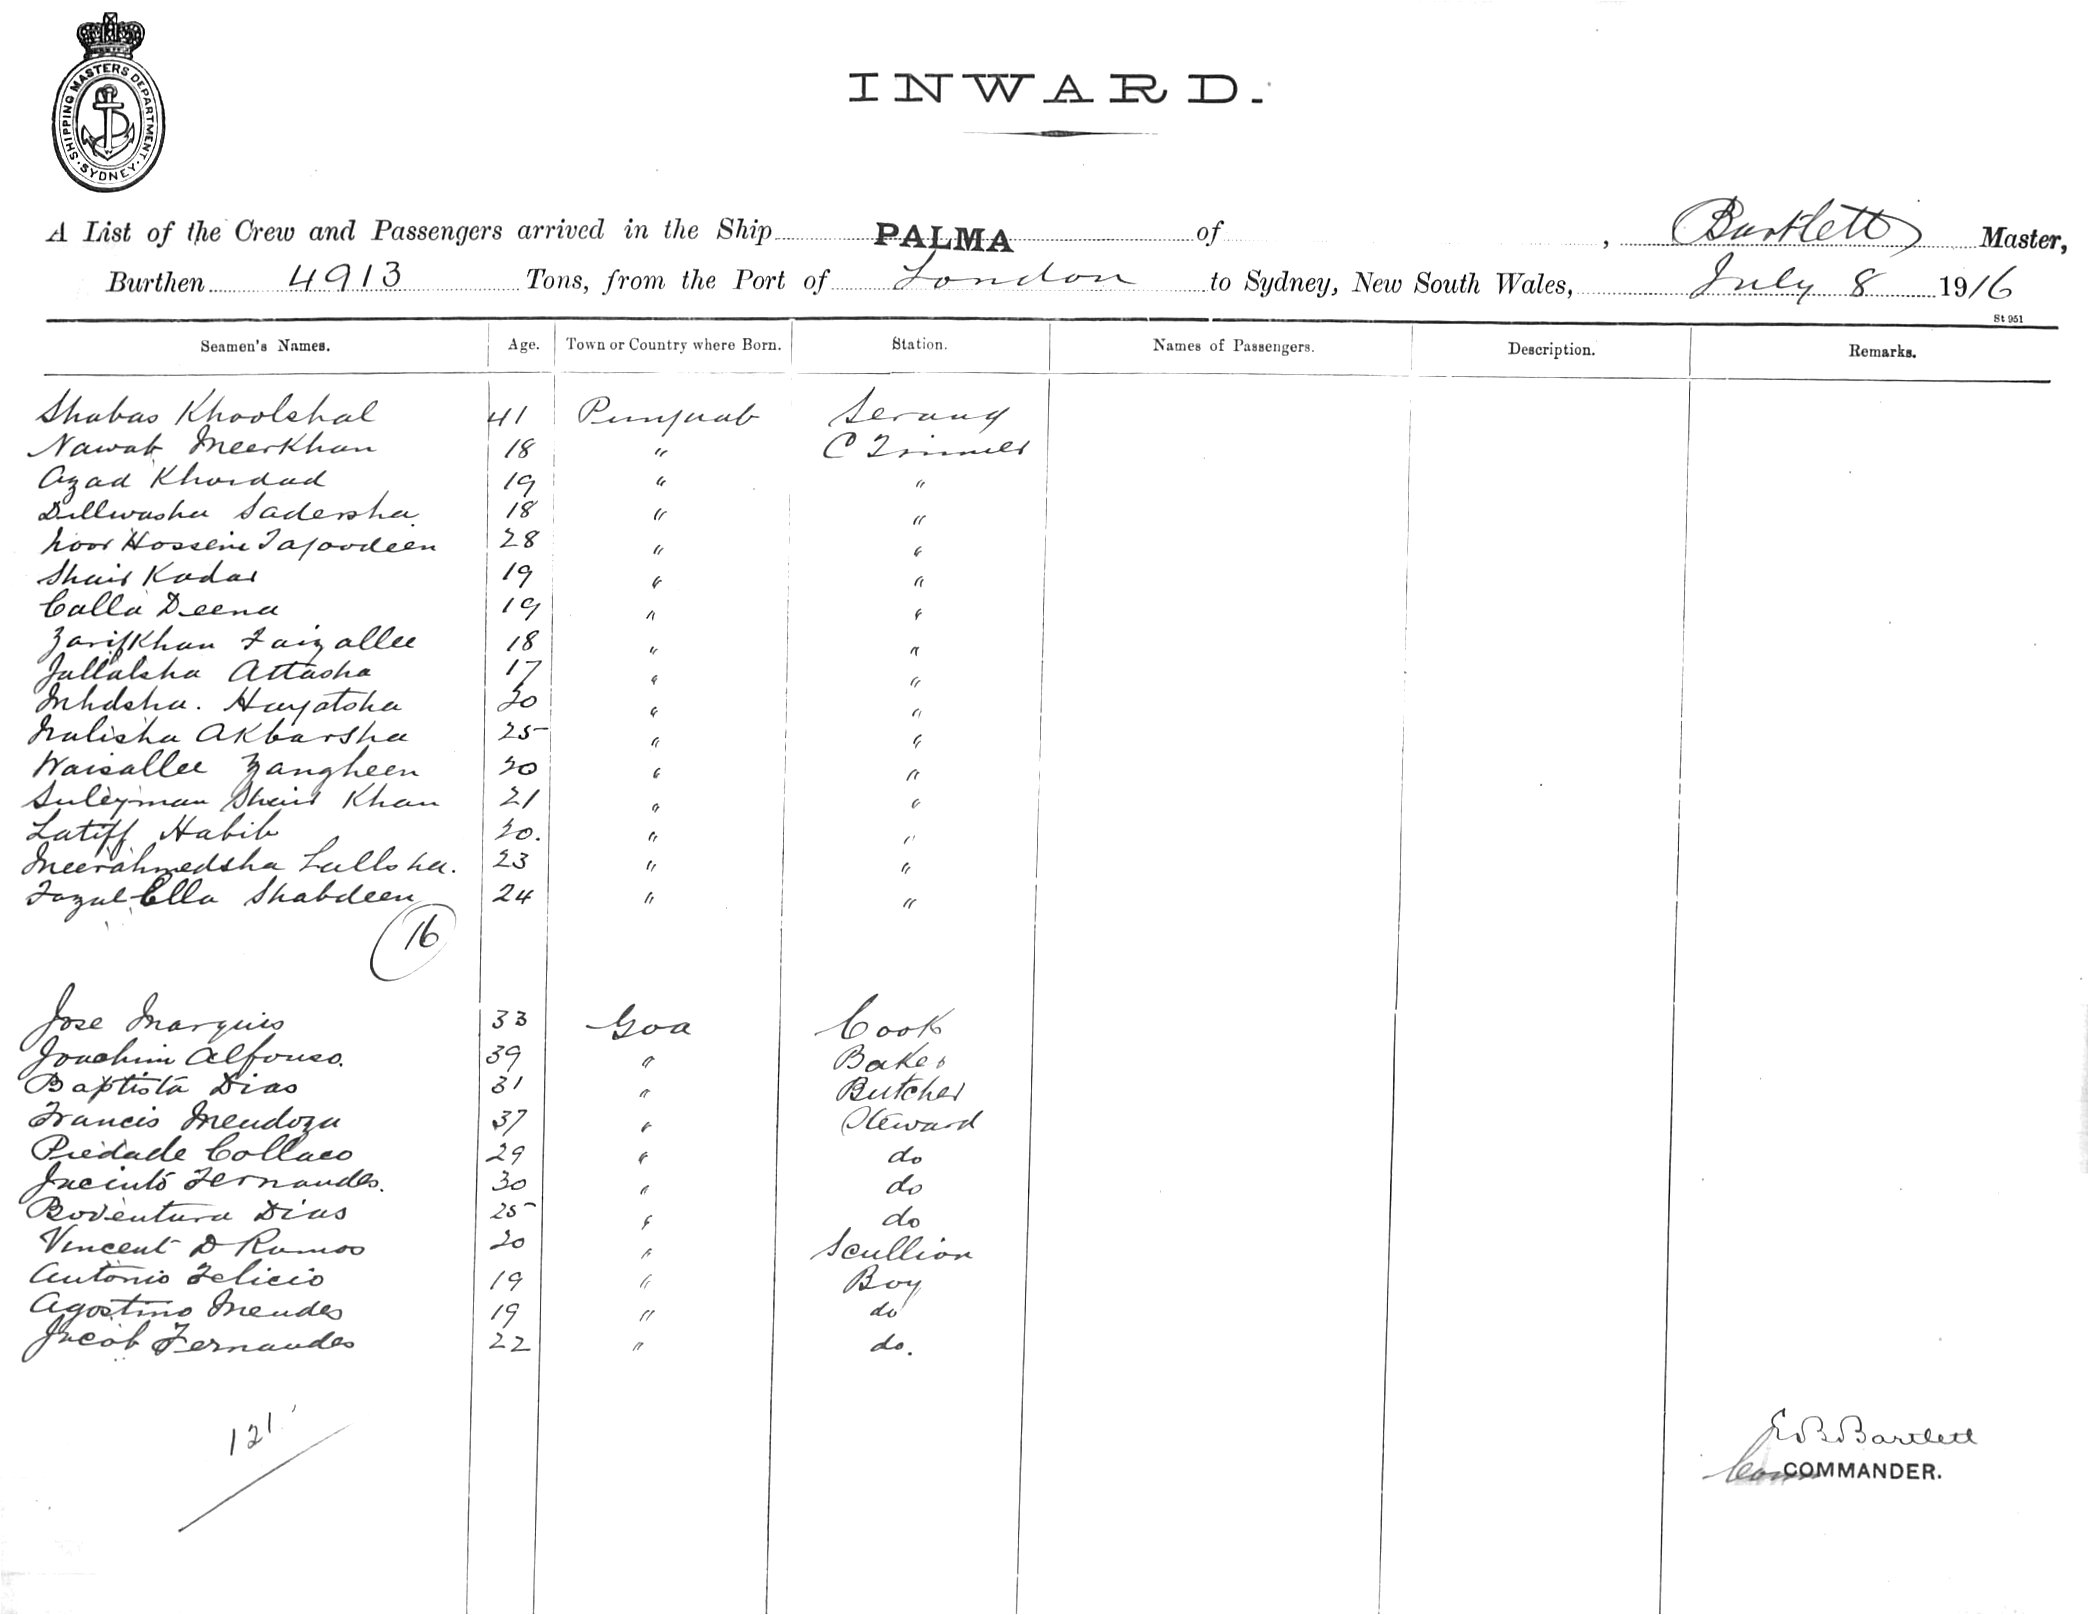 SHIPPING MASTERS DEPARTMENT. SYDNEY.
INWARD.
A List of the Crew and Passengers arrived in the Ship PALMA of , Bartlett Master,
Burthen 4913 Tons, from the Port of London to Sydney, New South Wales, July 8 1916
St 951
Seamen's Names. Age. Town or Country where Born. Station. Names of Passengers. Description. Remarks.
Shabas Khoolshal 41 Punjaub Serang
Nawab Meerkhan 18 " C Trimmer
Azad Khordad 19 " "
Dillwasha Sadersha 18 " "
Noor Hossein Tajoodeen 28 " "
Shair Kadar 19 " "
Calla Deena 19 " "
Zarifkhan Faizallee 18 " "
Jallalsha Attasha 17 " "
Mhdsha. Hayatsha 20 " "
Malisha Akbarsha 25 " "
Waisallee Zangheen 20 " "
Suleyman Shair Khan 21 " "
Latiff Habib 20. " "
Meerahmedsha Lallsha. 23 " "
Fazul Ella Shabdeen 24 " "
16
Jose Marquis 33 Goa Cook
Joachim Alfonso. 39 " Baker
Baptista Dias 31 " Butcher
Francis Mendoza 37 " Steward
Piedade Collaco 29 " do
Jacinto Fernandes. 30 " do
Boventura Dias 25 " do
Vincent D Ramos 20 " Scullion
Antonio Felicio 19 " Boy
Agostino Mendes 19 " do
Jacob Fernandes 22 " do.
121.
E B Bartlett
COMMANDER.